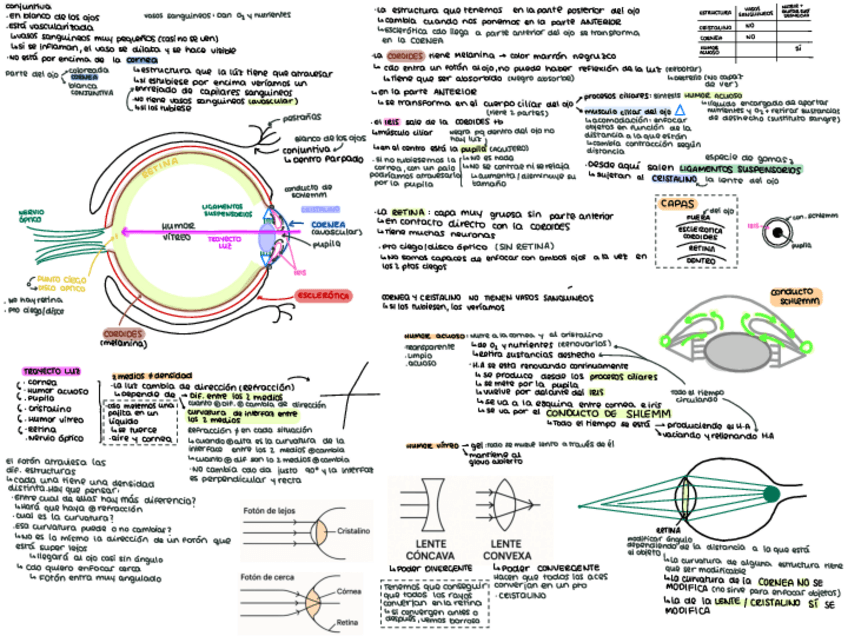 conjuntiva
· en blanco de los ojos
· está vascularizada
↳ vasos sanguíneos muy pequeños (casi no se ven)
↳ si se inflaman, el vaso se dilata y se hace visible
· no está por encima de la cornea
vasos sanguíneos: dan O₂ y nutrientes
parte del ojo
coloreada
CORNEA
blanca
CONJUNTIVA
↳ estructura que la luz tiene que atravesar
↳ si estubiese por encima veríamos un
enrejado de capilares sanguíneos
· no tiene vasos sanguíneos (avascular)
↳ si los tubiese
pestañas
blanco de los ojos
conjuntiva
↳ dentro parpado
RETINA
NERVIO
ÓPTICO
LIGAMENTOS
SUSPENSORIOS
HUMOR
VÍTREO
TROYECTO
LUZ
conducto de
schlemm
CRISTALINO
CORNEA
(avascular)
pupila
IRIS
PUNTO CIEGO
DISCO ÓPTICO
· no hay retina
· pto ciego/disco
COROIDES
(melanina)
ESCLERÓTICA
· la estructura que tenemos en la parte posterior del ojo
↳ cambia cuando nos ponemos en la parte ANTERIOR
↳ esclerótica cdo llega a parte anterior del ojo se transforma
en la CORNEA
ESTRUCTURA
VASOS
SANGUÍNEOS
CRISTALINO NO
CORNEA NO
HUMOR
ACUOSO
SÍ
· La COROIDES tiene melanina → color marrón negruzco
↳ cdo entra un fotón al ojo, no puede haber reflexión de la luz (rebotar)
↳ tiene que ser absorbido (negro absorbe)
↳ destello (no capaz
de ver)
↳ en la parte ANTERIOR
↳ se transforma en el cuerpo ciliar del ojo
(tiene 2 partes)
procesos ciliares: sintesis HUMOR ACUOSO
↳ líquido encargado de aportar
nutrientes y O₂ + retirar sustancias
de deshecho (sustituto sangre)
músculo ciliar del ojo
↳ acomodación: enfocar
objetos en función de la
distancia a la que están
↳ cambia contracción según
distancia
· el IRIS sale de la COROIDES tb
↳ músculo ciliar
negra pq dentro del ojo no
hay luz
↳ en el centro está la pupila (AGUJERO)
· si no tubiesemos la
córnea, con un palo
podríamos atravesarlo
por la pupila
↳ no es nada
↳ no se contrae ni se relaja
↳ aumenta/disminuye su
tamaño
especie de gomas
· Desde aquí salen LIGAMENTOS SUSPENSORIOS
↳ sujetan al CRISTALINO
la lente del ojo
· La RETINA: capa muy gruesa sin parte anterior
↳ en contacto directo con la COROIDES
↳ tiene muchas neuronas
· pto ciego/disco óptico (SIN RETINA)
↳ No somos capaces de enfocar con ambos ojos a la vez en
los 2 ptos ciegos
CAPAS
del ojo
FUERA
ESCLEROTICA
COROIDES
RETINA
DENTRO
con. schlemm
IRIS
pupila
CORNEA Y CRISTALINO NO TIENEN VASOS SANGUINEOS
↳ si los tubiesen, los veríamos
HUMOR ACUOSO: nutre a la cornea y al cristalino
· transparente
· limpio
· acuoso
↳ da O₂ y nutrientes (renovarlos)
↳ retira sustancias deshecho
↳ H.A se está renovando continuamente
↳ se produce desde los procesos ciliares
↳ se mete por la pupila
↳ vuelve por delante del IRIS
↳ se va a la esquina entre cornea e iris
↳ se va por el CONDUCTO DE SHLEMM
↳ Todo el tiempo se está
produciendo el H.A
vaciando y rellenando H.A
Todo el tiempo
circulando
CONDUCTO
SCHLEMM
HUMOR VÍTREO → gel: todo se mueve lento a través de él
↳ mantiene al
globo abierto
TROYECTO LUZ
· cornea
· Humor acuoso
· Pupila
· cristalino
· Humor vítreo
· Retina
· nervio óptico
2 medios ≠ densidad
· La luz cambia de dirección (refracción)
↳ depende de
DIF. entre los 2 medios
cuanto ⊕ dif. ⊕ cambia de dirección
curvatura de interfaz entre
los 2 medios
· cdo metemos una
pajita en un
líquido
↳ se tuerce
· aire y cornea
refracción ≠ en cada situación
↳ cuando ⊕ alta es la curvatura de la
interfaz entre los 2 medios ⊕ cambia
↳ cuanto ⊕ dif son la 2 medios ⊕ cambia
· NO cambia cdo da justo 90° y la interfaz
es perpendicular y recta
el fotón atraviesa las
dif. estructuras
↳ cada una tiene una densidad
distinta. Hay que pensar:
· entre cual de ellas hay más diferencia?
↳ Hará que haya ⊕ refracción
· cual es la curvatura?
· Esa curvatura puede o no cambiar?
↳ No es lo mismo la dirección de un fotón que
está super lejos
↳ llegará al ojo casi sin ángulo
↳ cdo quiero enfocar cerca
↳ Fotón entra muy angulado
Fotón de lejos
Cristalino
Fotón de cerca
Córnea
Retina
LENTE
CÓNCAVA
LENTE
CONVEXA
↳ Poder DIVERGENTE
↳ Poder CONVERGENTE
Hacen que todos los aces
converjan en un pto
· CRISTALINO
Tenemos que conseguir
que todos los rayos
converjan en la retina
↳ si convergen antes o
después, vemos borroso
RETINA
modificar ángulo
dependiendo de la distancia a la que está
el objeto
↳ la curvatura de alguna estructura tiene
que ser modificable
↳ la curvatura de la CORNEA NO SE
MODIFICA (no sirve para enfocar objetos)
↳ la de la LENTE / CRISTALINO SÍ SE
MODIFICA